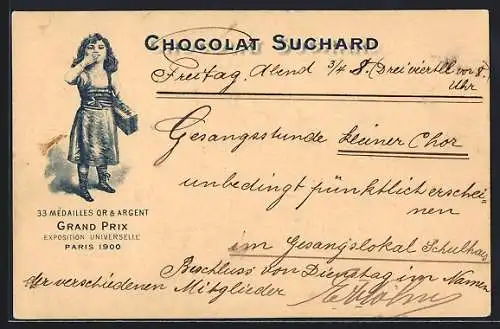 CHOCOLAT SUCHARD
Freitag Abend 3/4 8. (Dreiviertel vor 8.
Uhr
Gesangsstunde kleiner Chor
unbedingt pünktlich erschei-
nen
im Gesangslokal Schulhaus
Beschluss von Dienstag im Namen
der verschiedenen Mitglieder
33 MÉDAILLES OR & ARGENT
GRAND PRIX
EXPOSITION UNIVERSELLE
PARIS 1900